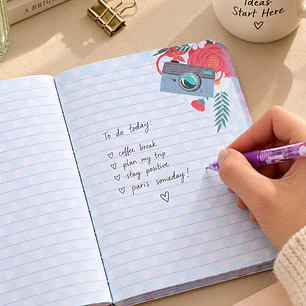 A BRIGHT
Ideas
Start Here
To do today:
coffee break
plan my trip
stay positive
paris someday!